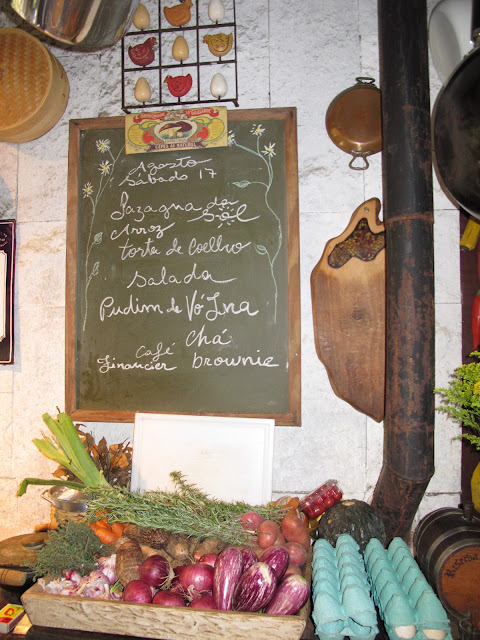 Agosto
Sábado 17
Lazagna da Sol
Arroz
torta de Coelho
Salada
Pudim de Vó Lina
Café Chá
Financier brownie